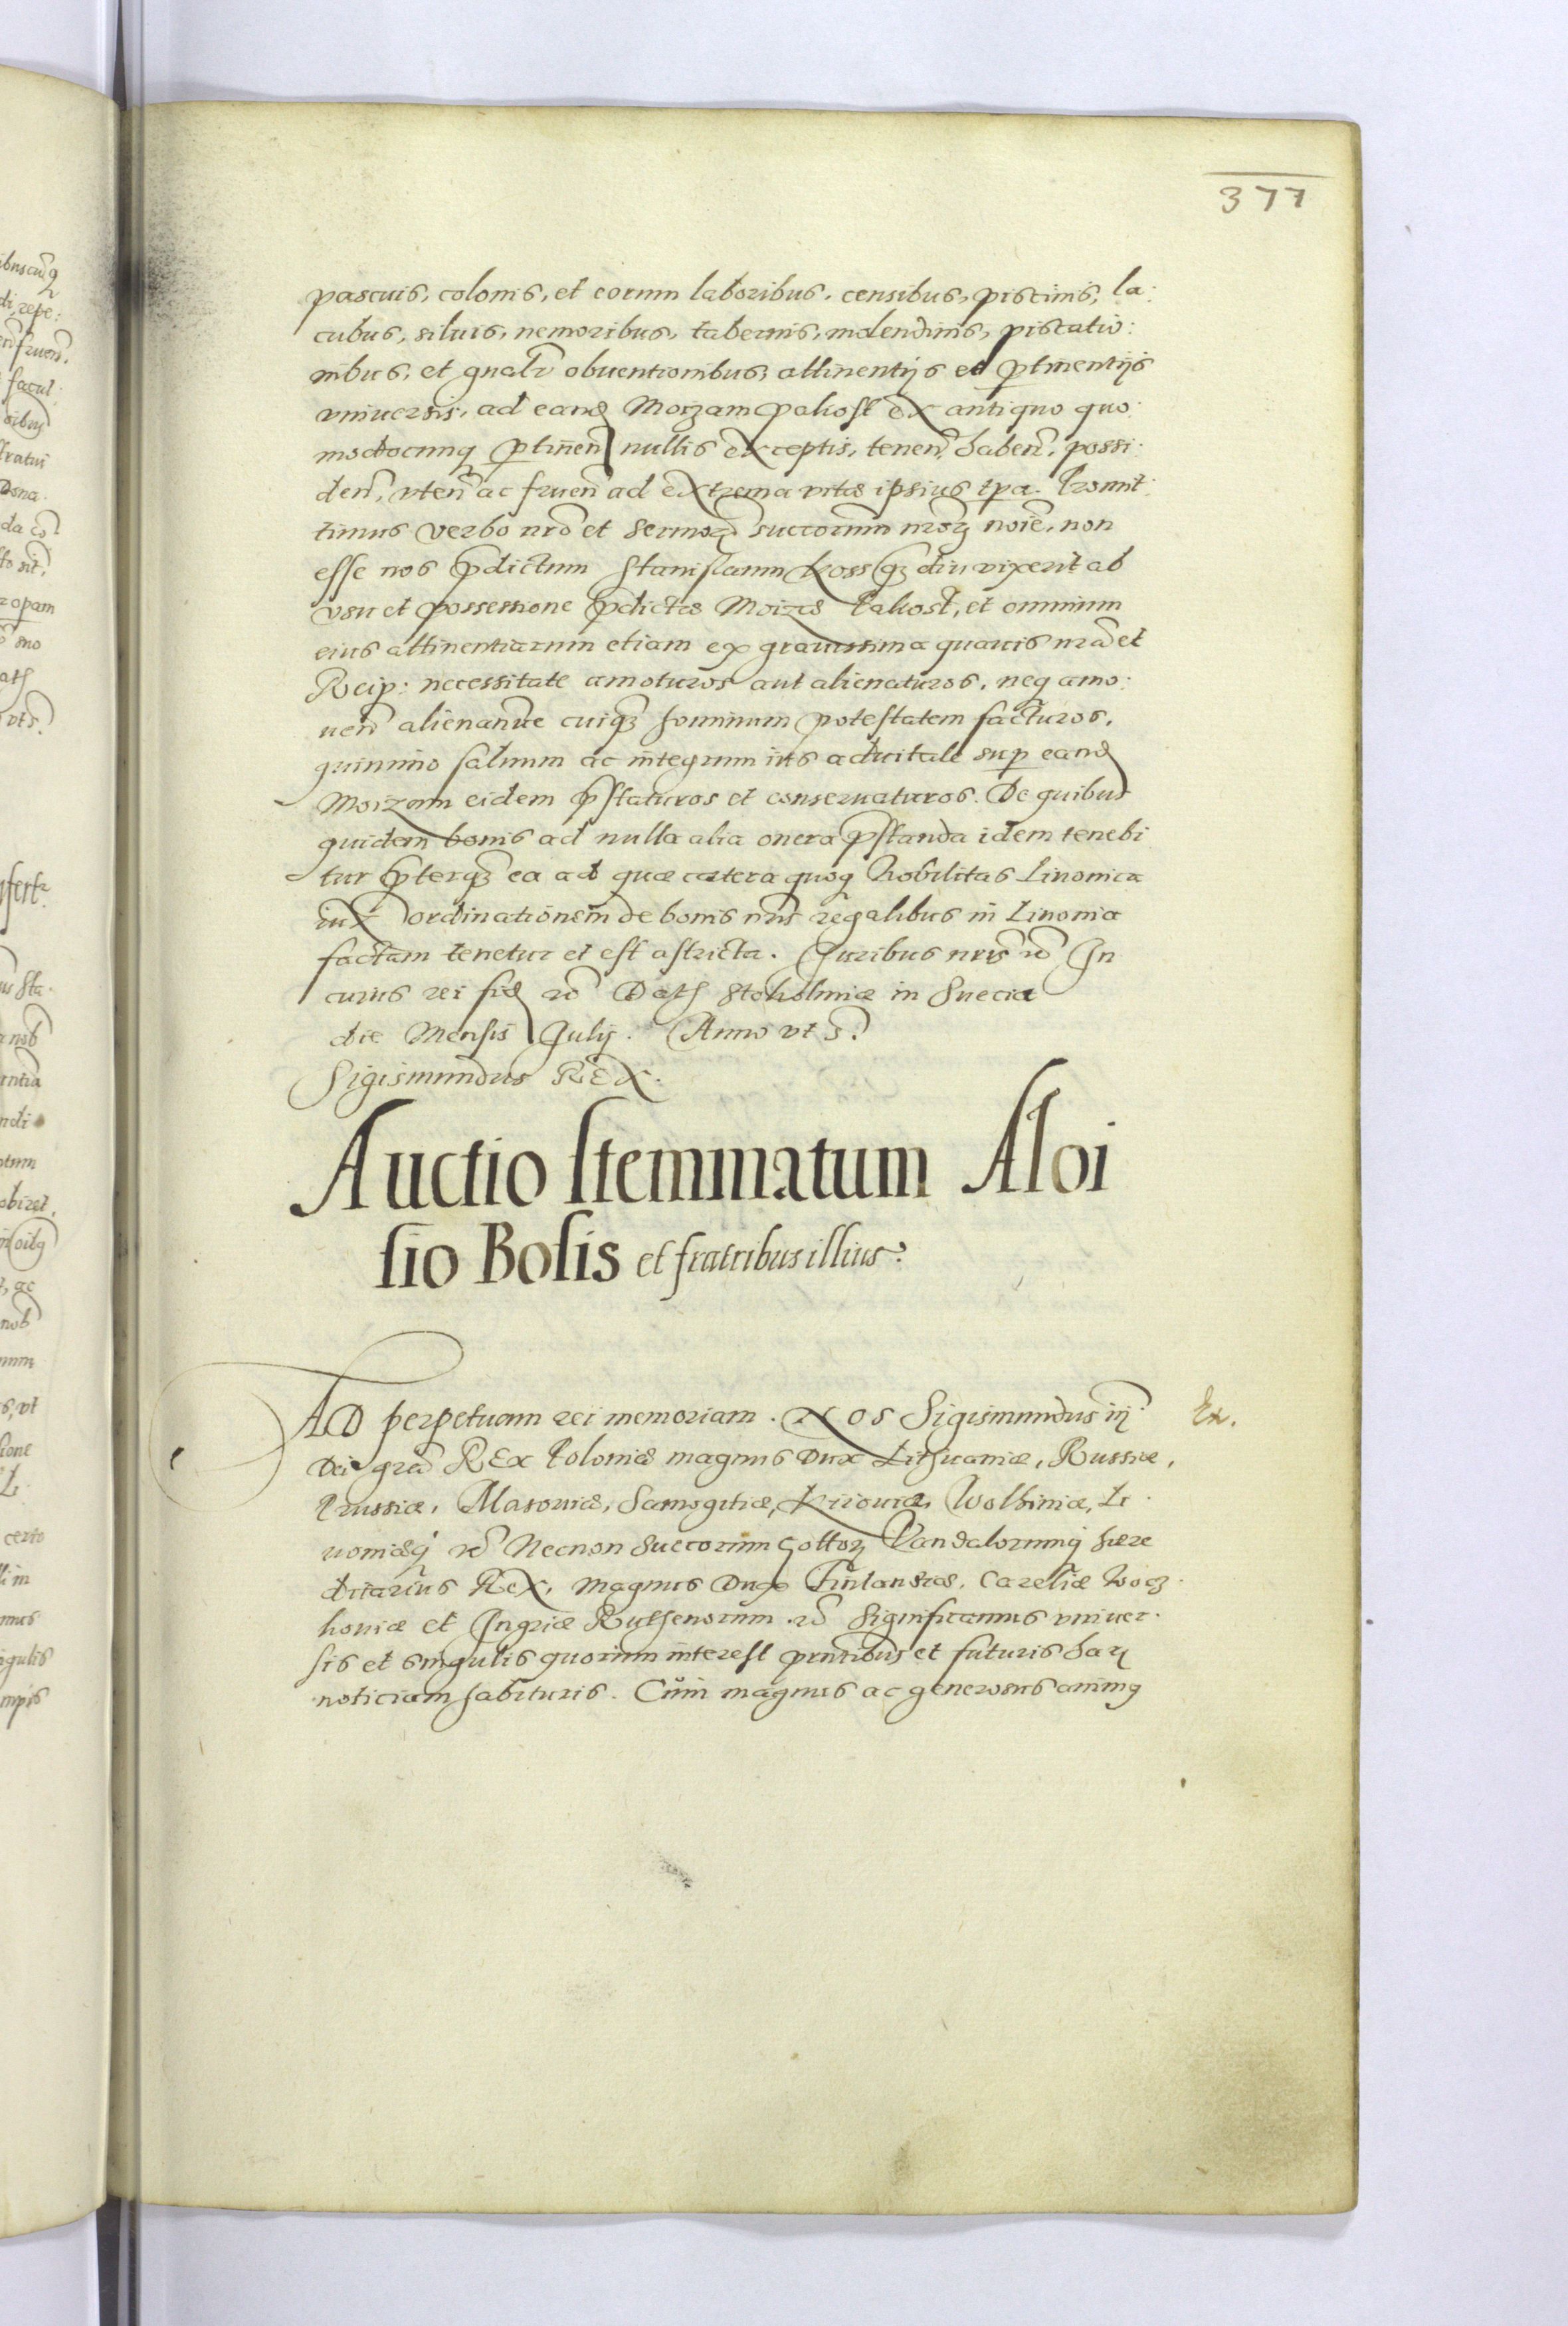 377
pascuis, colonis, et eorum laboribus, censibus, piscinis, la:
cubus, siluis, nemoribus, tabernis, molendinis, piscatio:
nibus, et gnalr obuentionibus, attinentijs et ptinentijs
vniuersis, ad eand Moizam Pahost ex antiquo quo:
modocunq ptinen nullis exceptis, tenen, haben, possi:
den, vten ac fruen ad extrema vitæ ipsius tpa. Promit:
timus verbo nro et sermoz succorum nroz noie, non
esse nos pdictum Stanislaum Koss qz diu vixerit ab
vsu et possessione pdictæ Moizæ Pahost, et omnium
eius attinentiarum etiam ex grauissima quauis nra et
Reip: necessitate amoturos aut alienaturos, neq amo:
uen alienanve cuiqz hominum potestatem facturos,
quinimo saluum ac integrum ius aduitale sup eand
Moizam eidem pstaturos et conseruaturos. De quibus
quidem bonis ad nulla alia onera pstanda idem tenebi
tur pterqz ea ad quæ cætera quoq Nobilitas Liuonica
iux ordinationem de bonis nris regalibus in Liuonia
factam tenetur et est astricta. Juribus nris rc In
cuius rei fid rc Dath Stokolmiæ in Suecia
die Mensis Julij. Anno vt s.
Sigismundus REX.
Auctio stemmatum Aloi
sio Bosis et fratribus illius.
AD perpetuam rei memoriam. NOS Sigismundus iij
Ex.
Dei gra REx Poloniæ magnus Dux Lithuaniæ, Russiæ,
Prussiæ, Masouiæ, Samogitiæ, Kiiouiæ, Wolhiniæ, Li
uoniæq rc Necnon Suecorum Gottoz Vandalorumq hære
ditarius REX, Magnus Dux Finlandiæ, Careliæ Woiz
houiæ et Ingriæ Ruthenorum rc Significamus vniuer
sis et singulis quorum interest pntibus et futuris haz
noticiam habituris. Cum magnus ac generosus animq